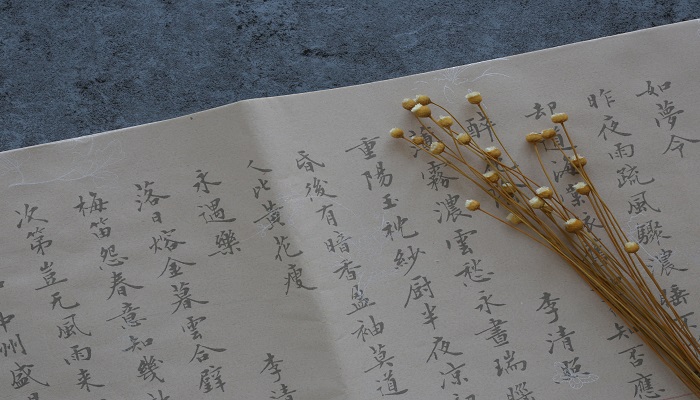 如夢令
昨夜雨疏風驟濃睡不
却道海棠 知否應
醉 李清照
薄霧濃雲愁永晝瑞腦
重陽玉枕紗厨半夜凉初
昏後有暗香盈袖莫道
人比黃花瘦
永遇樂 李清
落日熔金暮雲合璧
梅笛怨春意知幾
次第豈无風雨來
中州盛